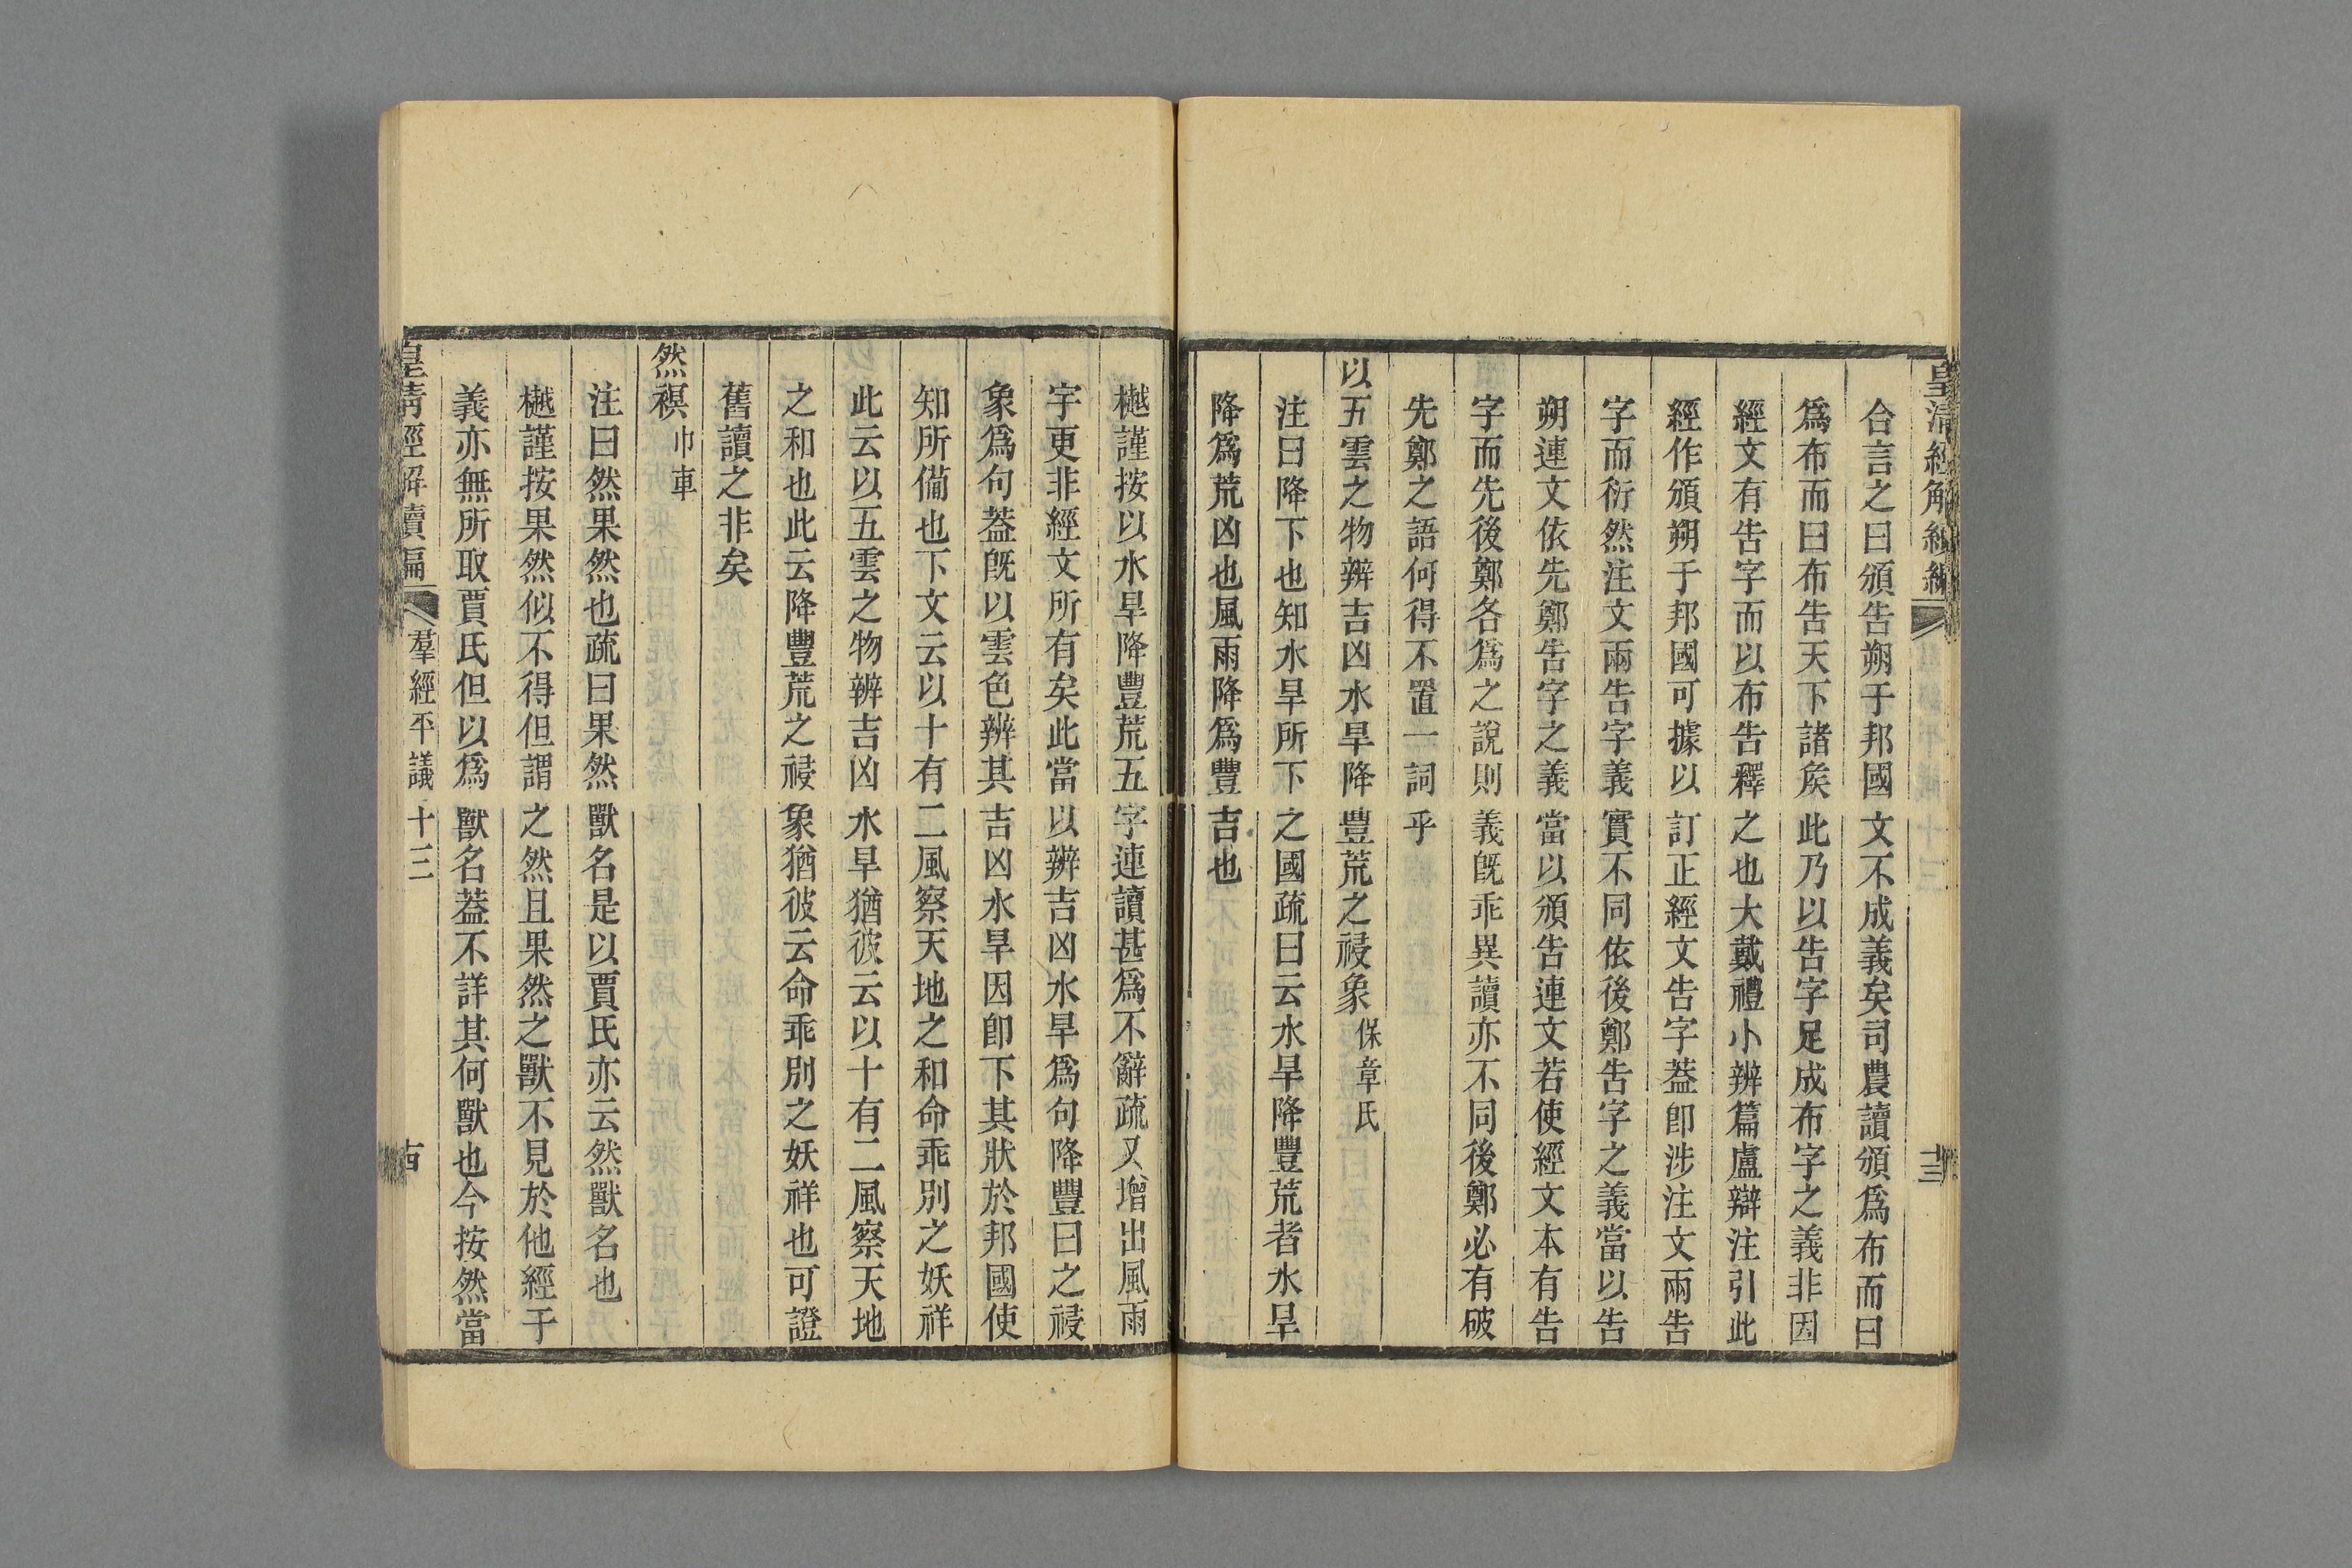 皇清經解續編
合言之曰頒告朔于邦國文不成義矣司農讀頒爲布而曰
爲布而曰布告天下諸矦此乃以告字足成布字之義非因
經文有告字而以布告釋之也大戴禮小辨篇盧辯注引此
經作頒朔于邦國可據以訂正經文告字葢卽涉注文兩告
字而衍然注文兩告字義實不同依後鄭告字之義當以告
朔連文依先鄭告字之義當以頒告連文若使經文本有告
字而先後鄭各爲之說則義旣乖異讀亦不同後鄭必有破
先鄭之語何得不置一詞乎
以五雲之物辨吉凶水旱降豐荒之祲象保章氏
注曰降下也知水旱所下之國疏曰云水旱降豐荒者水旱
降爲荒凶也風雨降爲豐吉也
十三
樾謹按以水旱降豐荒五字連讀甚爲不辭疏又增出風雨
字更非經文所有矣此當以辨吉凶水旱爲句降豐曰之祲
象爲句葢旣以雲色辨其吉凶水旱因卽下其狀於邦國使
知所備也下文云以十有二風察天地之和命乖別之妖祥
此云以五雲之物辨吉凶水旱猶彼云以十有二風察天地
之和也此云降豐荒之祲象猶彼云命乖別之妖祥也可證
舊讀之非矣
然𧜀巾車
注曰然果然也疏曰果然獸名是以賈氏亦云然獸名也
樾謹按果然似不得但謂之然且果然之獸不見於他經于
義亦無所取賈氏但以爲獸名葢不詳其何獸也今按然當
皇清經解續編
羣經平議十三
古